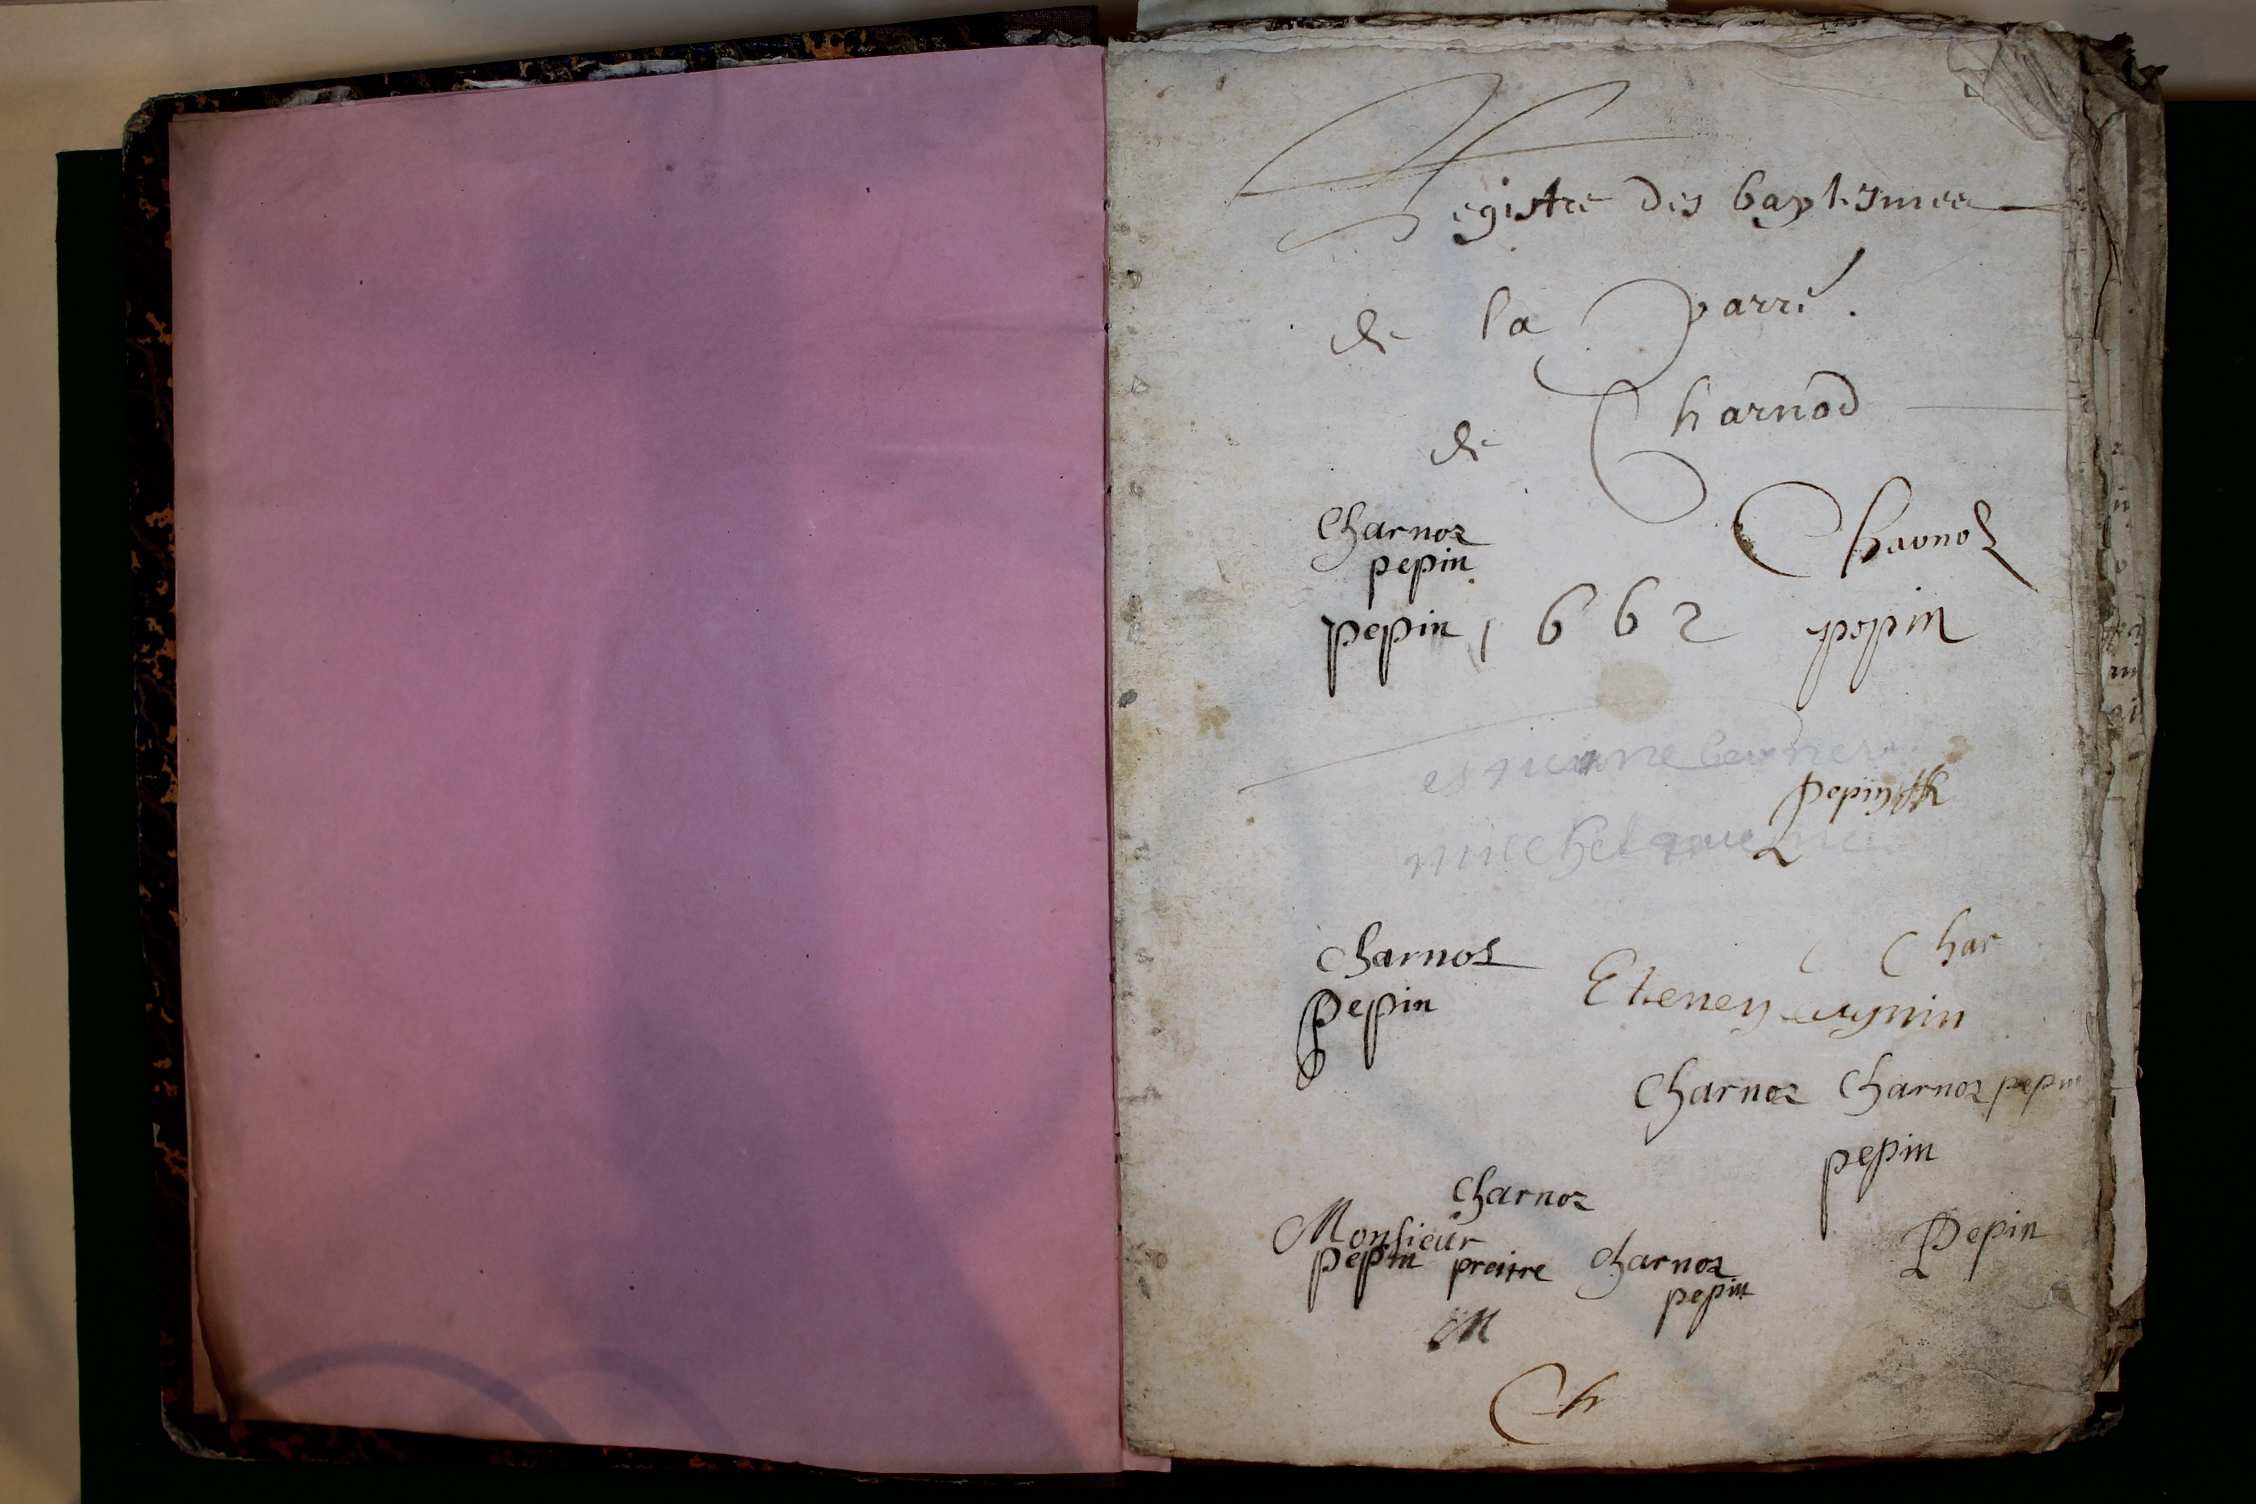 Registre des baptesmes
de la Parré.
de Charnod
Charnoz
pepin
Charnoz
pepin 1662 pepin
Pepin
Charnoz
Pepin
Char
Charnoz Charnoz pepin
pepin
Charnoz
Monsieur
pepin preitre Charnoz
pepin
Pepin
M
Ch